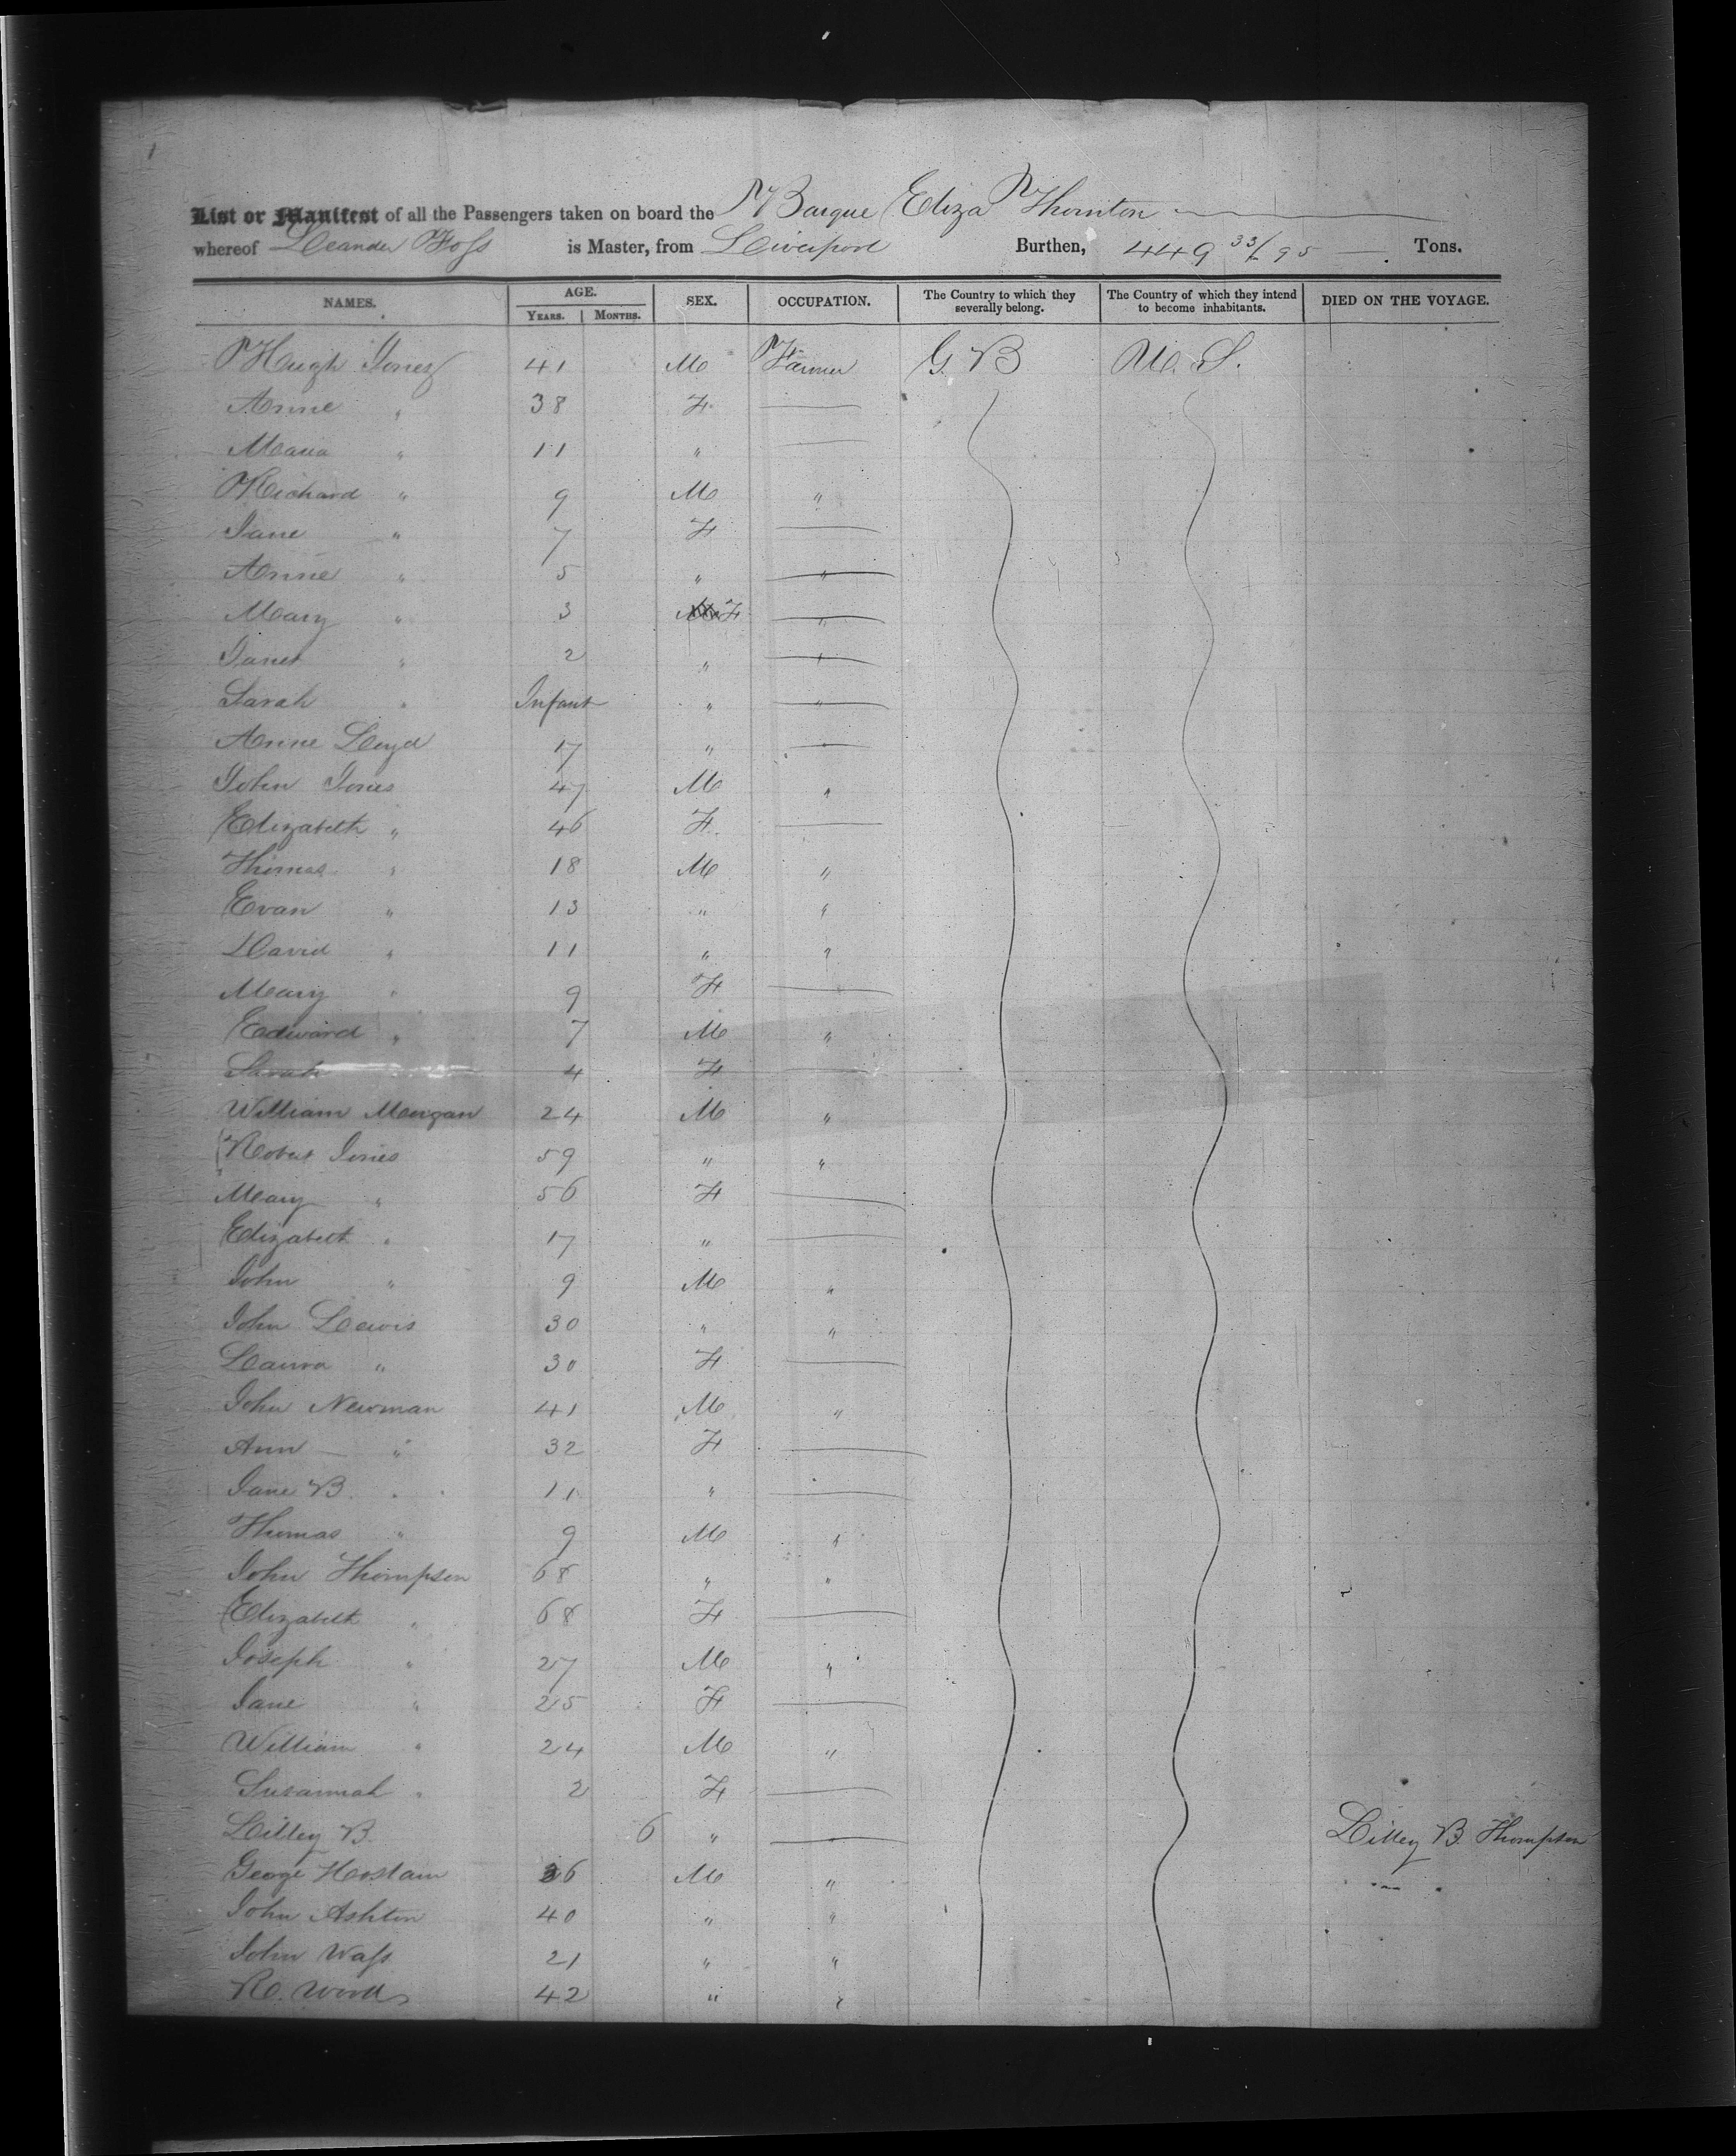 1
List or Manifest of all the Passengers taken on board the Barque Eliza Thornton
whereof Leander Foss is Master, from Liverpool Burthen, 449 33/95 Tons.
NAMES. AGE. SEX. OCCUPATION. The Country to which they severally belong. The Country of which they intend to become inhabitants. DIED ON THE VOYAGE.
YEARS. MONTHS.
Hugh Jones 41 M Farmer G. B U. S.
Anne " 38 F
Maria " 11 "
Richard " 9 M "
Jane " 7 F
Anne " 5 " "
Mary " 3 F "
Janet " 2 " "
Sarah " Infant " "
Anne Loyd 17 " "
John Jones 47 M "
Elizabeth " 46 F.
Thomas " 18 M "
Evan " 13 " "
David " 11 " "
Mary " 9 F
Edward " 7 M "
Sarah 4 F
William Morgan 24 M "
Robert Jones 59 " "
Mary " 56 F
Elizabeth " 17 "
John " 9 M "
John Lewis 30 " "
Laura " 30 F
John Newman 41 M "
Ann " 32 F
Jane B. " 11 "
Thomas " 9 M "
John Thompson 68 " "
Elizabeth " 68 F
Joseph " 27 M "
Jane " 25 F
William " 24 M "
Susannah " 2 F
Lilley B. 6 " Lilley B. Thompson
George 36 M "
John Ashton 40 " "
John Wass 21 " "
R. 42 " "